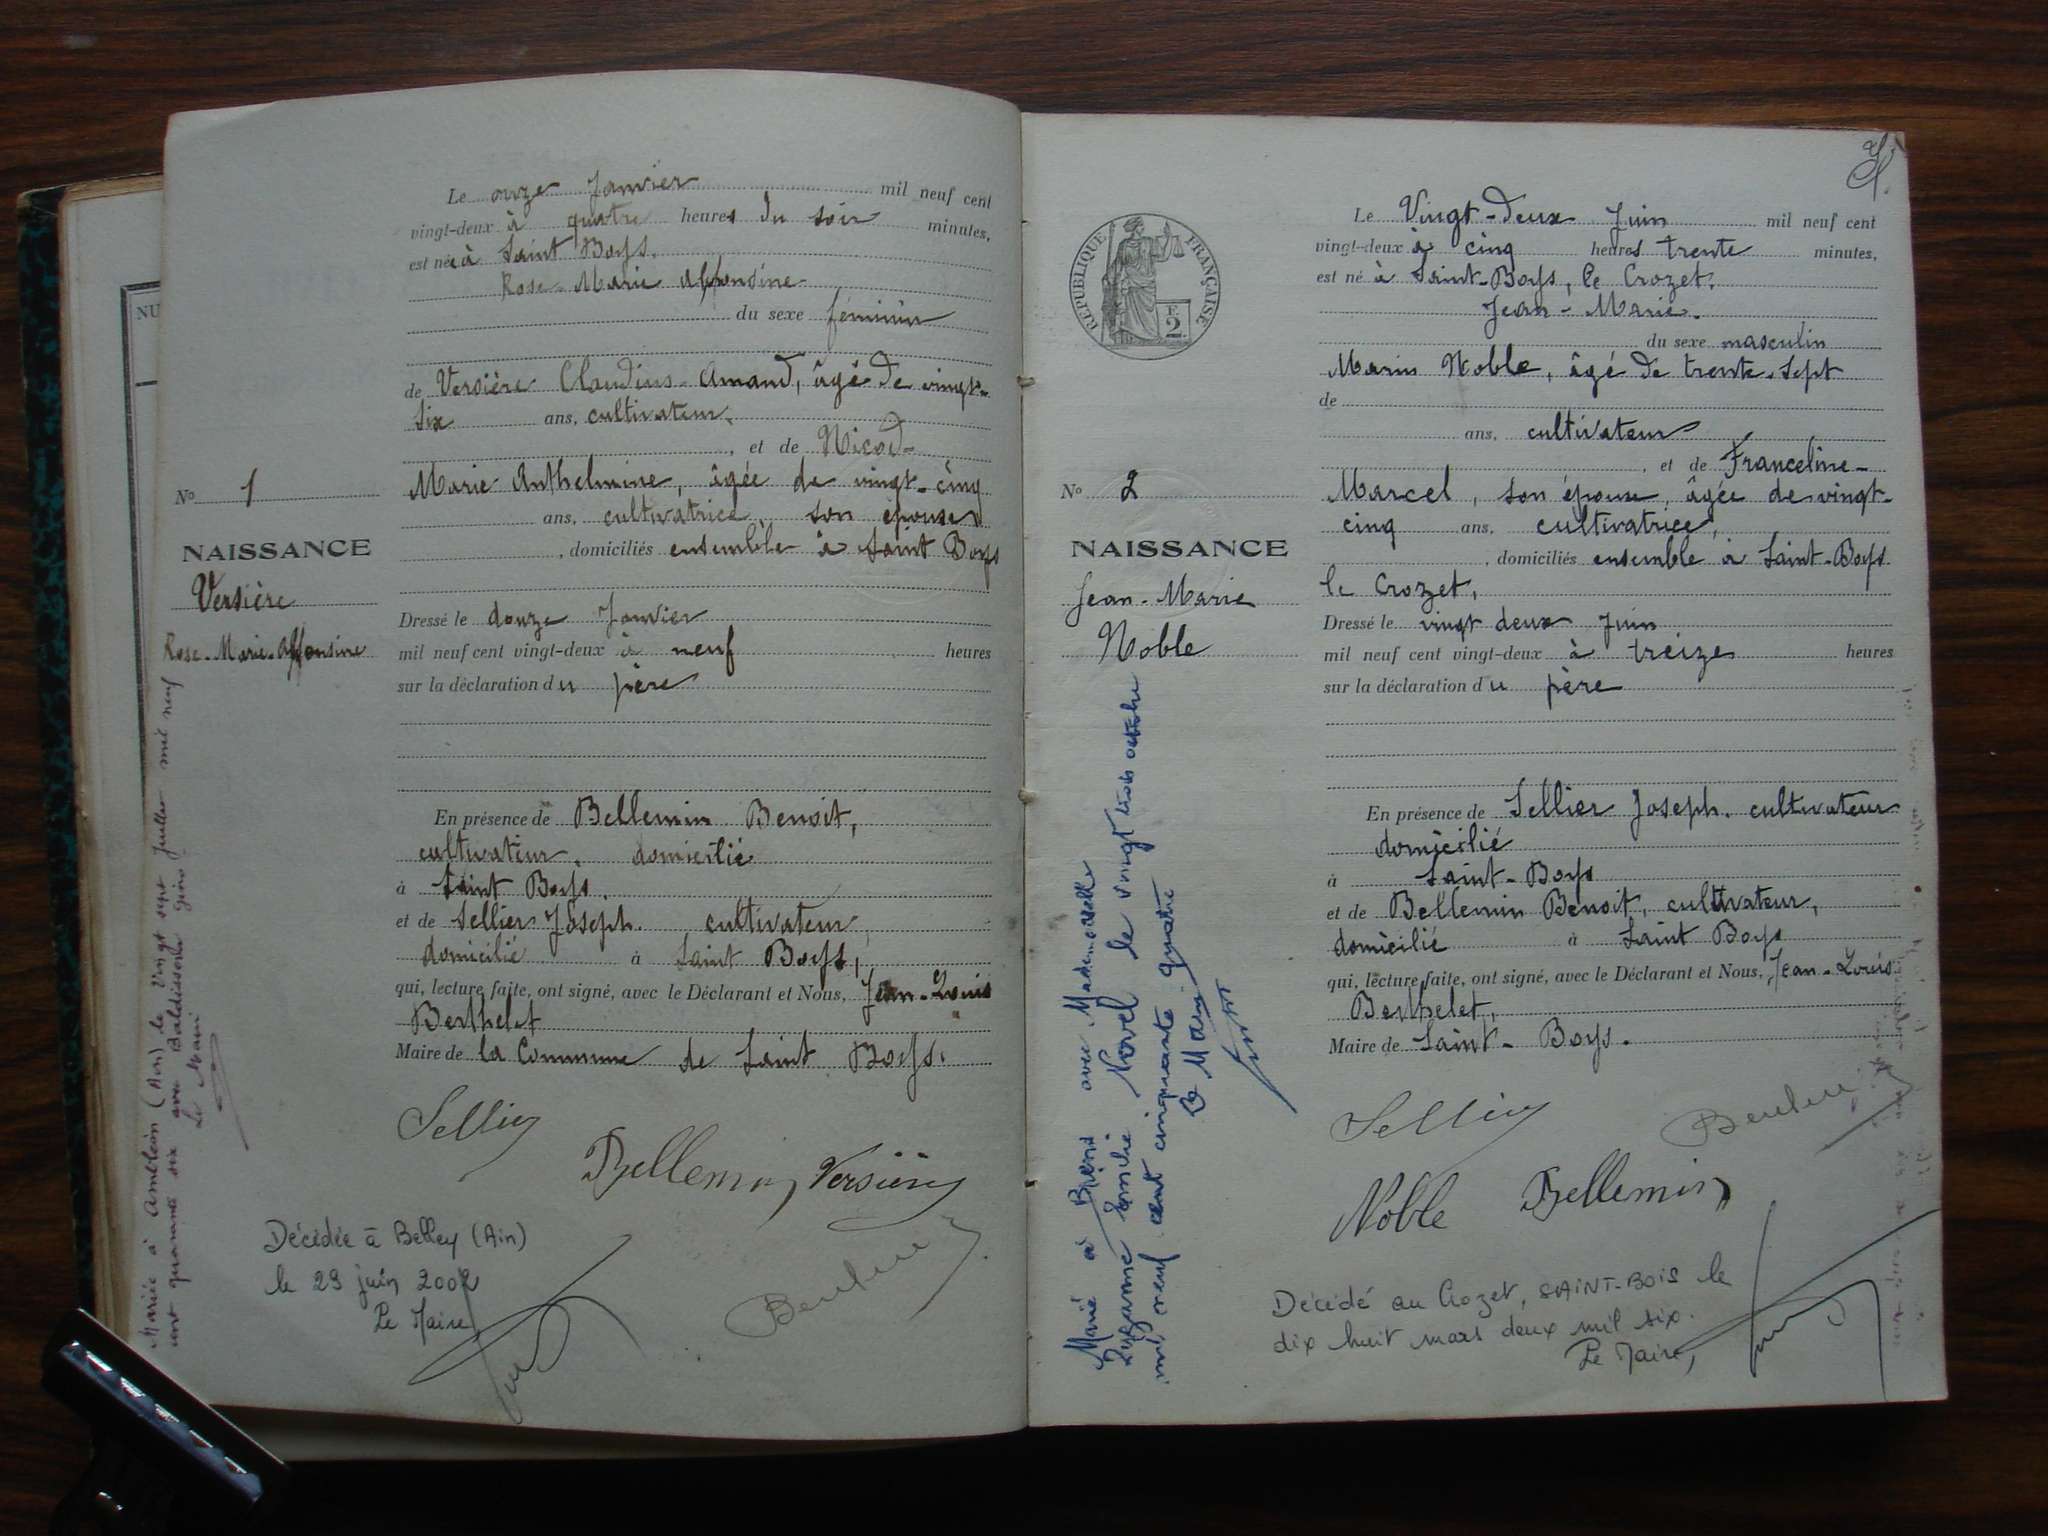 Le onze Janvier mil neuf cent
vingt-deux à quatre heures du soir minutes,
est née à Saint Boys.
Rose-Marie Alphonsine
du sexe féminin
de Versière Claudius-Amand, âgé de vingt-
six ans, cultivateur,
, et de Nicod-
Marie Anthelmine, âgée de vingt-cinq
ans, cultivatrice, son épouse
, domiciliés ensemble à Saint Boys
N° 1
NAISSANCE
Versière
Rose-Marie-Alphonsine
Dressé le douze Janvier
mil neuf cent vingt-deux à neuf heures
sur la déclaration du père
En présence de Bellemin Benoit,
cultivateur, domicilié
à Saint Boys.
et de Sellier Joseph. cultivateur,
domicilié à Saint Boys,
qui, lecture faite, ont signé, avec le Déclarant et Nous, Jean-Louis
Berthelet
Maire de la Commune de Saint Boys.
Sellier
Bellemin Versière
Mariée à Ambléon (Ain) le vingt sept juillet mil neuf
cent quarante six avec Baldissone
Le Maire
Décédée à Belley (Ain)
le 29 juin 2002
Le Maire
RÉPUBLIQUE FRANÇAISE
F
2
Le Vingt-deux Juin mil neuf cent
vingt-deux à cinq heures trente minutes,
est né à Saint-Boys, le Crozet,
Jean-Marie.
du sexe masculin
Marin Noble, âgé de trente-sept
de
ans, cultivateur
, et de Franceline-
Marcel, son épouse, âgée de vingt-
cinq ans, cultivatrice,
, domiciliés ensemble à Saint-Boys
le Crozet,
N° 2
NAISSANCE
Jean-Marie
Noble
Dressé le vingt deux Juin
mil neuf cent vingt-deux à treize heures
sur la déclaration du père
En présence de Sellier Joseph. cultivateur
domicilié
à Saint-Boys
et de Bellemin Benoit, cultivateur,
domicilié à Saint Boys
qui, lecture faite, ont signé, avec le Déclarant et Nous, Jean-Louis
Berthelet,
Maire de Saint-Boys.
Sellier
Noble Bellemin
Marié à Brens avec Mademoiselle
Suzanne Emilie Novel le vingt trois octobre
mil neuf cent cinquante quatre
Le Maire
Décédé au Crozet, SAINT-BOIS le
dix huit mars deux mil six.
Le Maire,